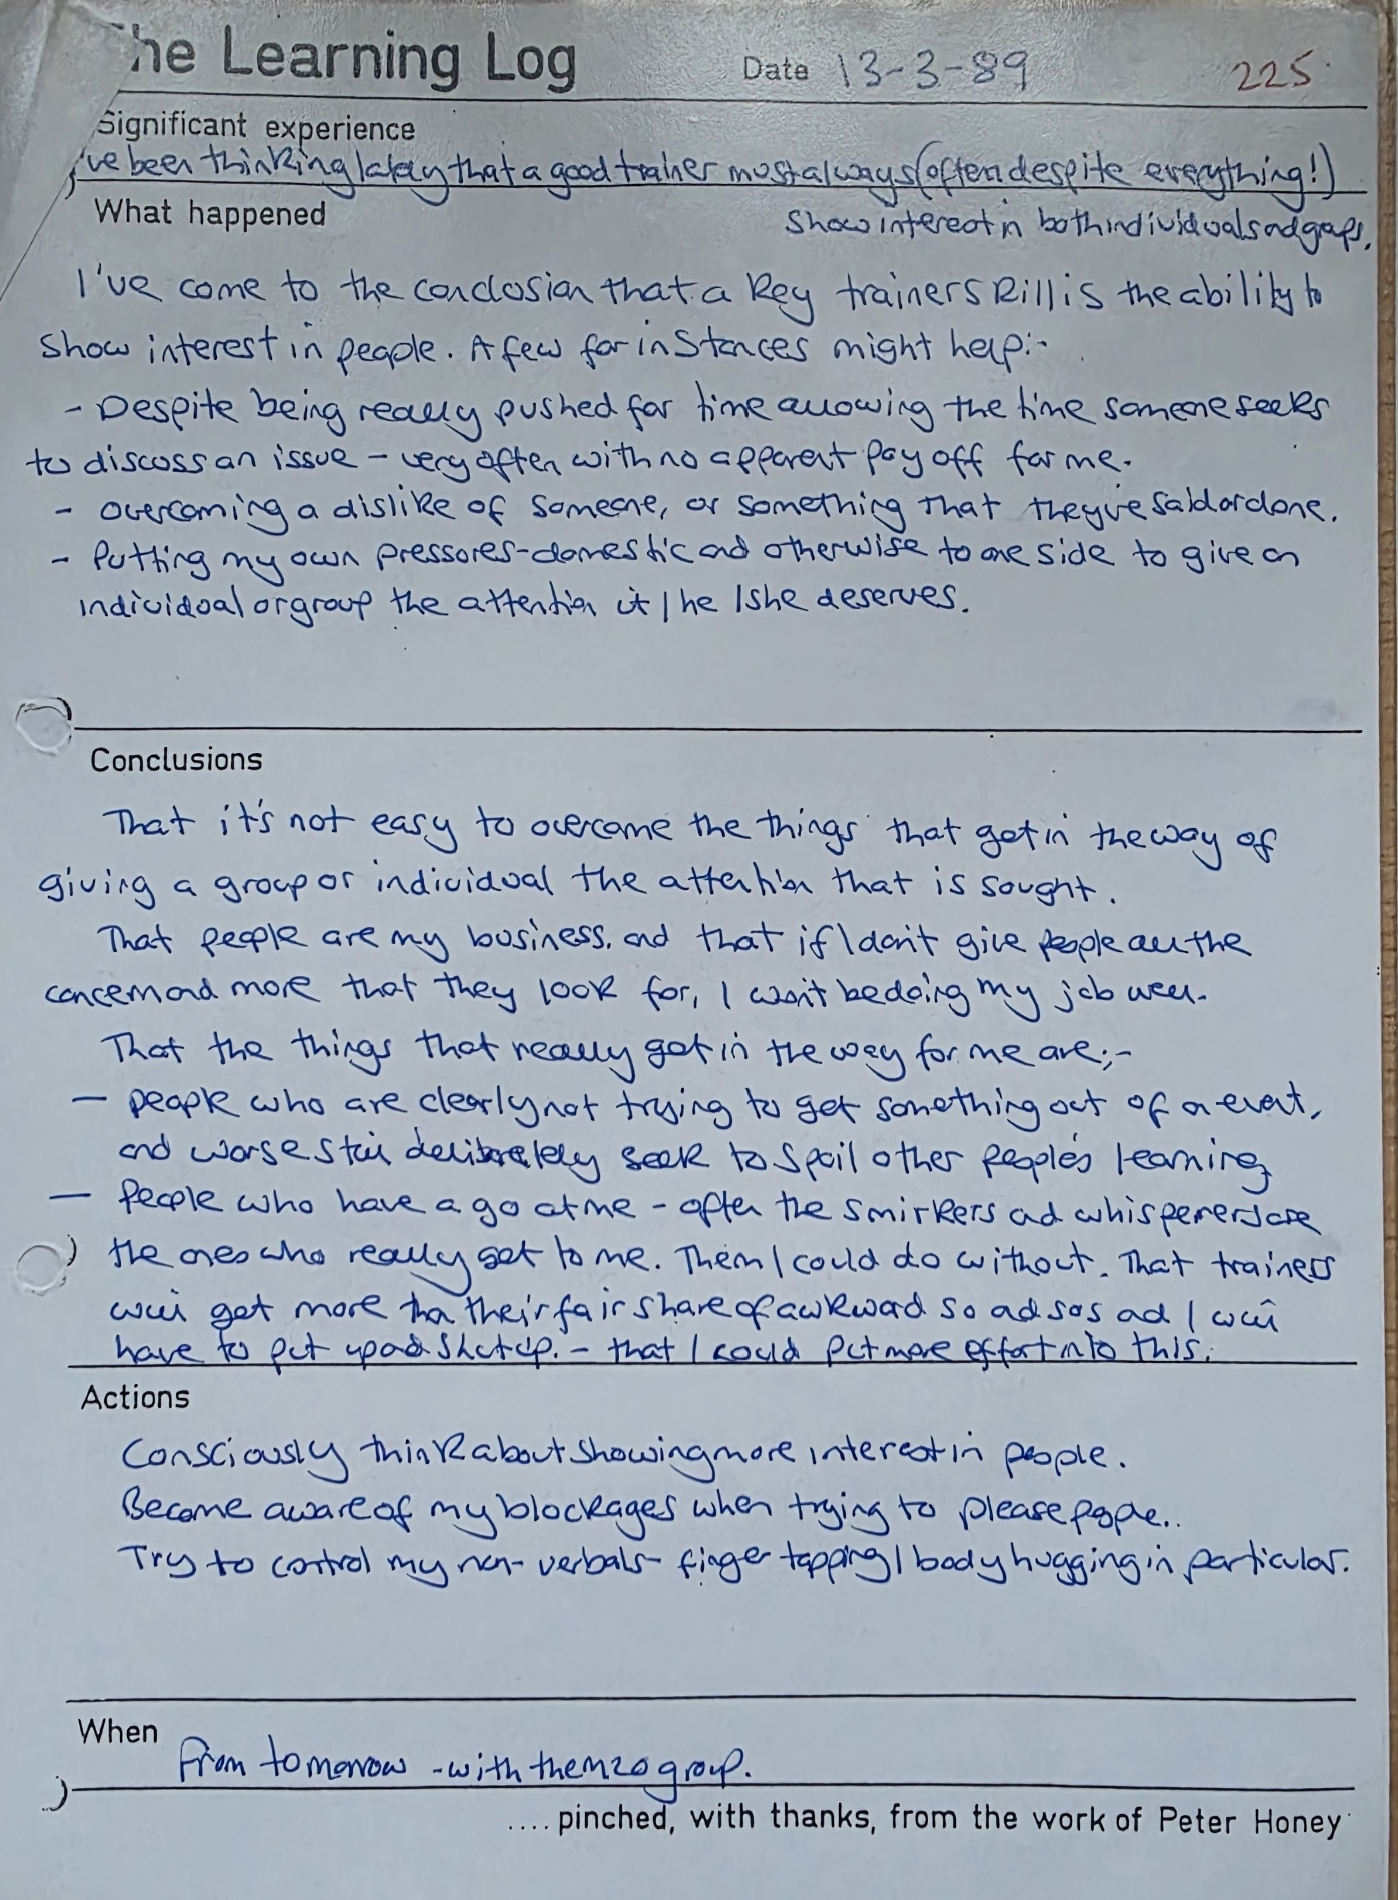 The Learning Log Date 13-3-89 225
Significant experience
I've been thinking lately that a good trainer must always (often despite everything!)
What happened show interest in both individuals and groups.
I've come to the conclusion that a key trainer skill is the ability to
show interest in people. A few for instances might help:-
- Despite being really pushed for time allowing the time someone seeks
to discuss an issue - very often with no apparent pay off for me.
- overcoming a dislike of someone, or something that they've said or done.
- Putting my own pressures - domestic and otherwise to one side to give an
individual or group the attention it / he / she deserves.
Conclusions
That it's not easy to overcome the things that get in the way of
giving a group or individual the attention that is sought.
That people are my business, and that if I don't give people all the
concern and more that they look for, I won't be doing my job well.
That the things that really get in the way for me are;-
- people who are clearly not trying to get something out of an event,
and worse still deliberately seek to spoil other people's learning
- People who have a go at me - often the smirkers and whisperers are
the ones who really get to me. Them I could do without. That trainers
will get more than their fair share of awkward so and sos and I will
have to put up and shut up. - that I could put more effort into this.
Actions
Consciously think about showing more interest in people.
Become aware of my blockages when trying to please people..
Try to control my non-verbals - finger tapping / body hugging in particular.
When
From tomorrow - with the M20 group.
.... pinched, with thanks, from the work of Peter Honey